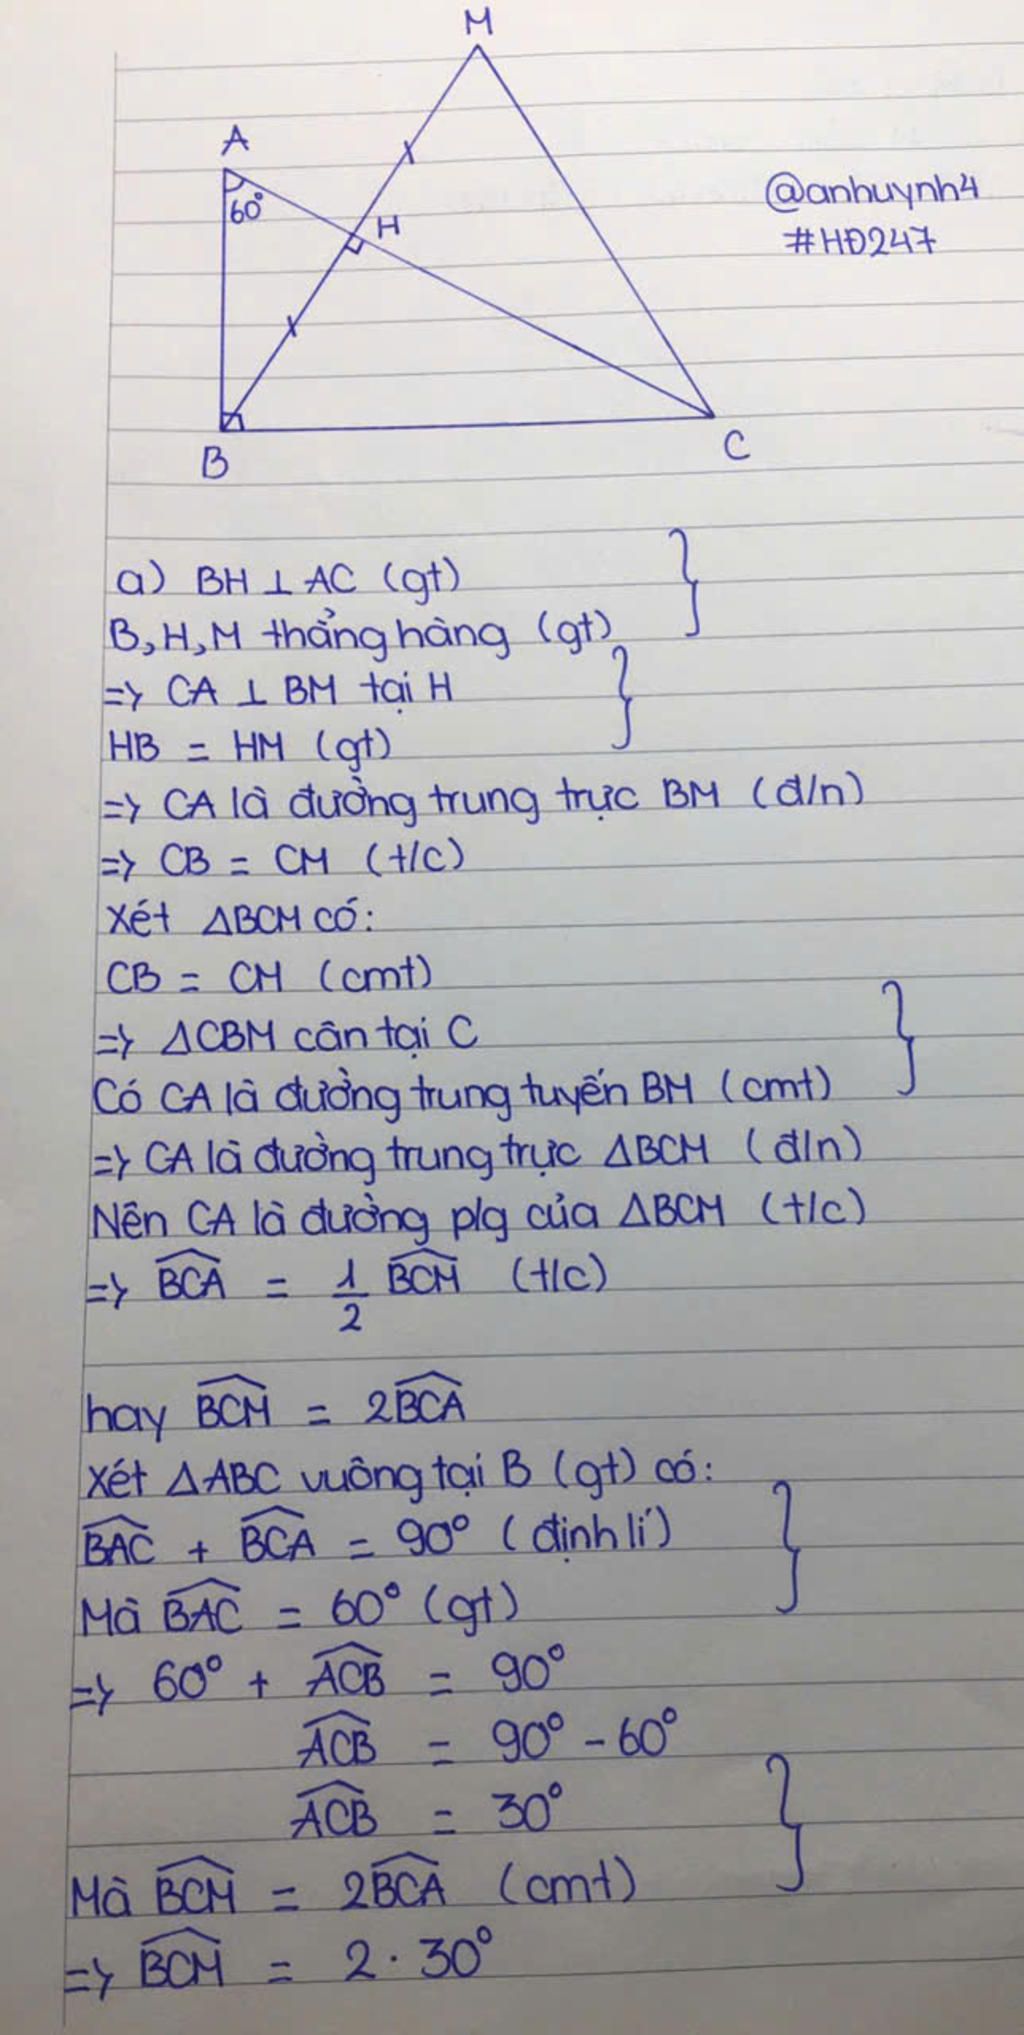 M
A
60°
H
@anhuynh4
#HĐ247
B
C
a) BH ⊥ AC (gt)
B, H, M thẳng hàng (gt)
=> CA ⊥ BM tại H
HB = HM (gt)
=> CA là đường trung trực BM (đ/n)
=> CB = CM (t/c)
Xét ΔBCM có:
CB = CM (cmt)
=> ΔCBM cân tại C
Có CA là đường trung tuyến BM (cmt)
=> CA là đường trung trực ΔBCM (đ/n)
Nên CA là đường p/g của ΔBCM (t/c)
=> \widehat{BCA} = \frac{1}{2} \widehat{BCM} (t/c)
hay \widehat{BCM} = 2\widehat{BCA}
Xét ΔABC vuông tại B (gt) có:
\widehat{BAC} + \widehat{BCA} = 90° (định lí)
Mà \widehat{BAC} = 60° (gt)
=> 60° + \widehat{ACB} = 90°
\widehat{ACB} = 90° - 60°
\widehat{ACB} = 30°
Mà \widehat{BCM} = 2\widehat{BCA} (cmt)
=> \widehat{BCM} = 2 · 30°